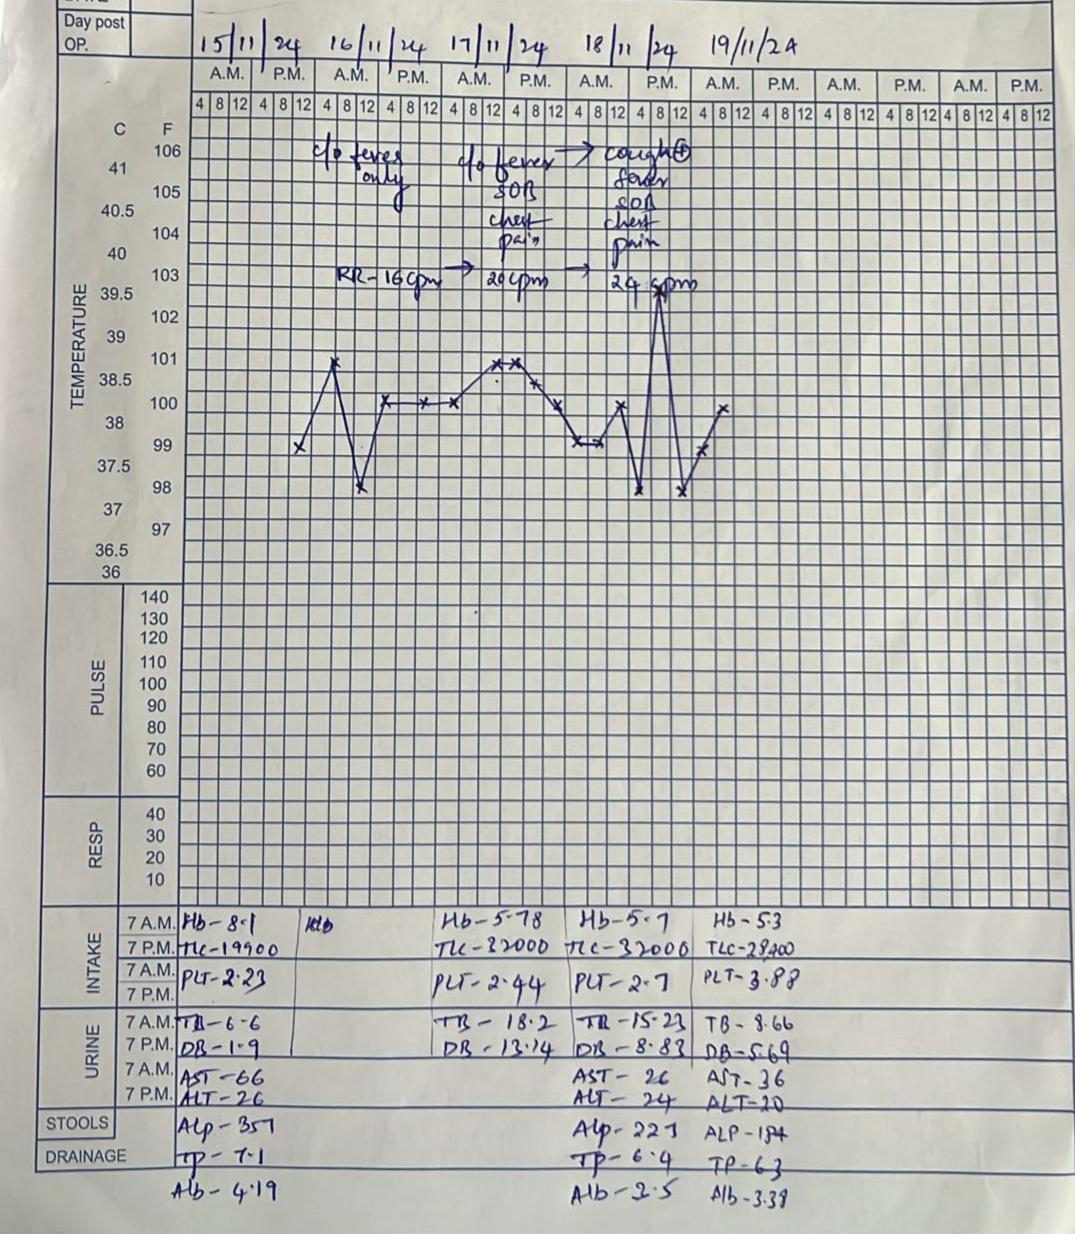 Day post
OP.
15/11/24 16/11/24 17/11/24 18/11/24 19/11/24
A.M. P.M. A.M. P.M. A.M. P.M. A.M. P.M. A.M. P.M. A.M. P.M. A.M. P.M.
4 8 12 4 8 12 4 8 12 4 8 12 4 8 12 4 8 12 4 8 12 4 8 12 4 8 12 4 8 12 4 8 12 4 8 12 4 8 12 4 8 12
C F
106
c/o fever c/o fever → cough⊕
41
only fever
105 SOB SOB
40.5
chest chest
104
pain pain
40
103
RR-16cpm → 20cpm → 24 cpm
39.5
TEMPERATURE
102
39
101
38.5
100
38
99
37.5
98
37
97
36.5
36
PULSE
140
130
120
110
100
90
80
70
60
RESP
40
30
20
10
INTAKE
7 A.M. Hb-8.1 Hb-5.78 Hb-5.7 Hb-5.3
7 P.M. TLC-19900 TLC-32000 TLC-32000 TLC-28,400
7 A.M. PLT-2.23 PLT-2.44 PLT-2.7 PLT-3.88
7 P.M.
URINE
7 A.M. TB-6.6 TB-18.2 TB-15.23 TB-8.66
7 P.M. DB-1.9 DB-13.14 DB-8.83 DB-5.69
7 A.M. AST-66 AST-26 AST-36
7 P.M. ALT-26 ALT-24 ALT-20
STOOLS Alp-357 Alp-227 ALP-184
DRAINAGE TP-7.1 TP-6.4 TP-6.3
Alb-4.19 Alb-3.5 Alb-3.39